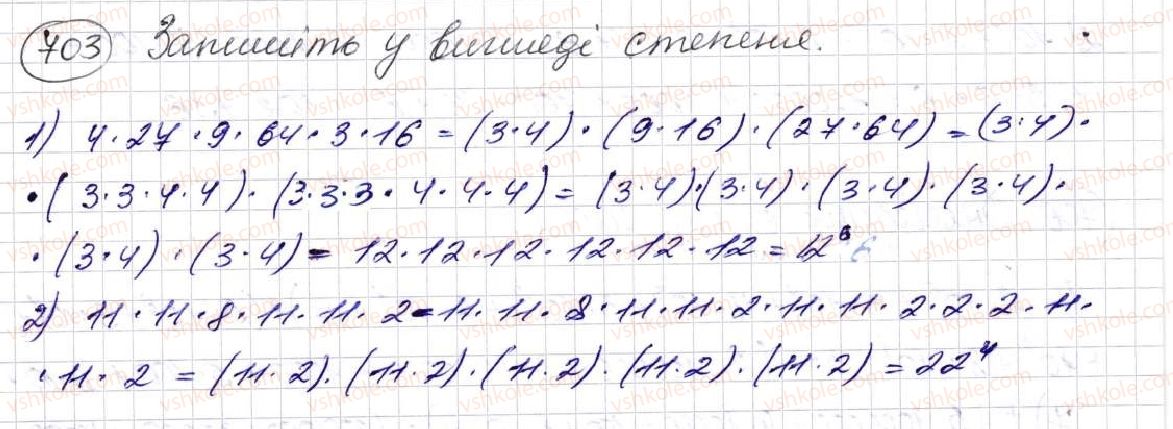 703 Запишіть у вигляді степеня.
1) 4·27·9·64·3·16=(3·4)·(9·16)·(27·64)=(3·4)·
·(3·3·4·4)·(3·3·3·4·4·4)=(3·4)·(3·4)·(3·4)·(3·4)·
·(3·4)·(3·4)=12·12·12·12·12·12=12⁶
2) 11·11·8·11·11·2=11·11·8·11·11·2·11·11·2·2·2·11·
·11·2=(11·2)·(11·2)·(11·2)·(11·2)·(11·2)=22⁴